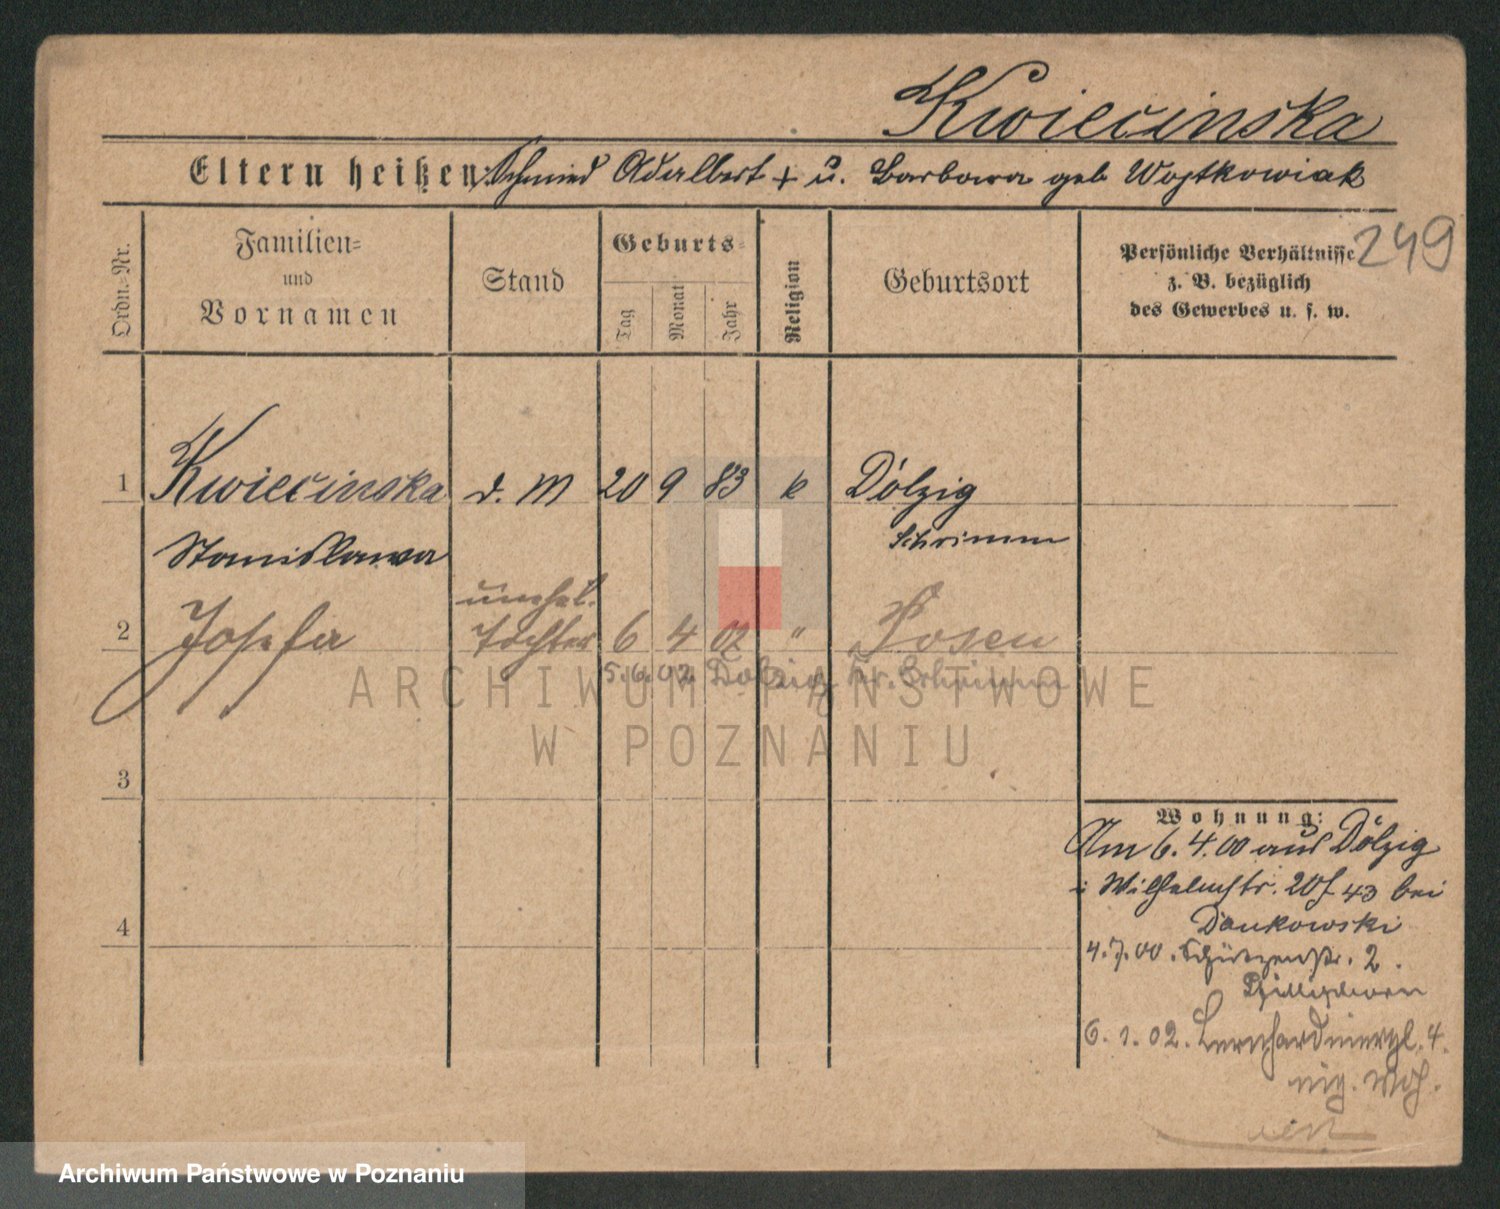 Kwiecinska
Eltern heißen: Schmied Adalbert + u. Barbara geb Wojtkowiak
249
Ordn.-Nr.
Familien- und Vornamen
Stand
Geburts-
Tag Monat Jahr
Religion
Geburtsort
Persönliche Verhältnisse
z. B. bezüglich
des Gewerbes u. s. w.
1 Kwiecinska d. M 20 9 83 k Dolzig
Stanislawa Schrimm
unehel.
2 Josefa Tochter 6 4 02 " Posen
5.6.02 Dolzig Kr. Schrimm
3
4
Wohnung:
Am 6.4.00 aus Dolzig
Wilhelmstr. 20 43 bei
Dankowski
4.7.00. Schützenstr. 2.
6.1.02. Bernhardinerpl. 4.
eig. Woh.
ARCHIWUM PAŃSTWOWE
W POZNANIU
Archiwum Państwowe w Poznaniu